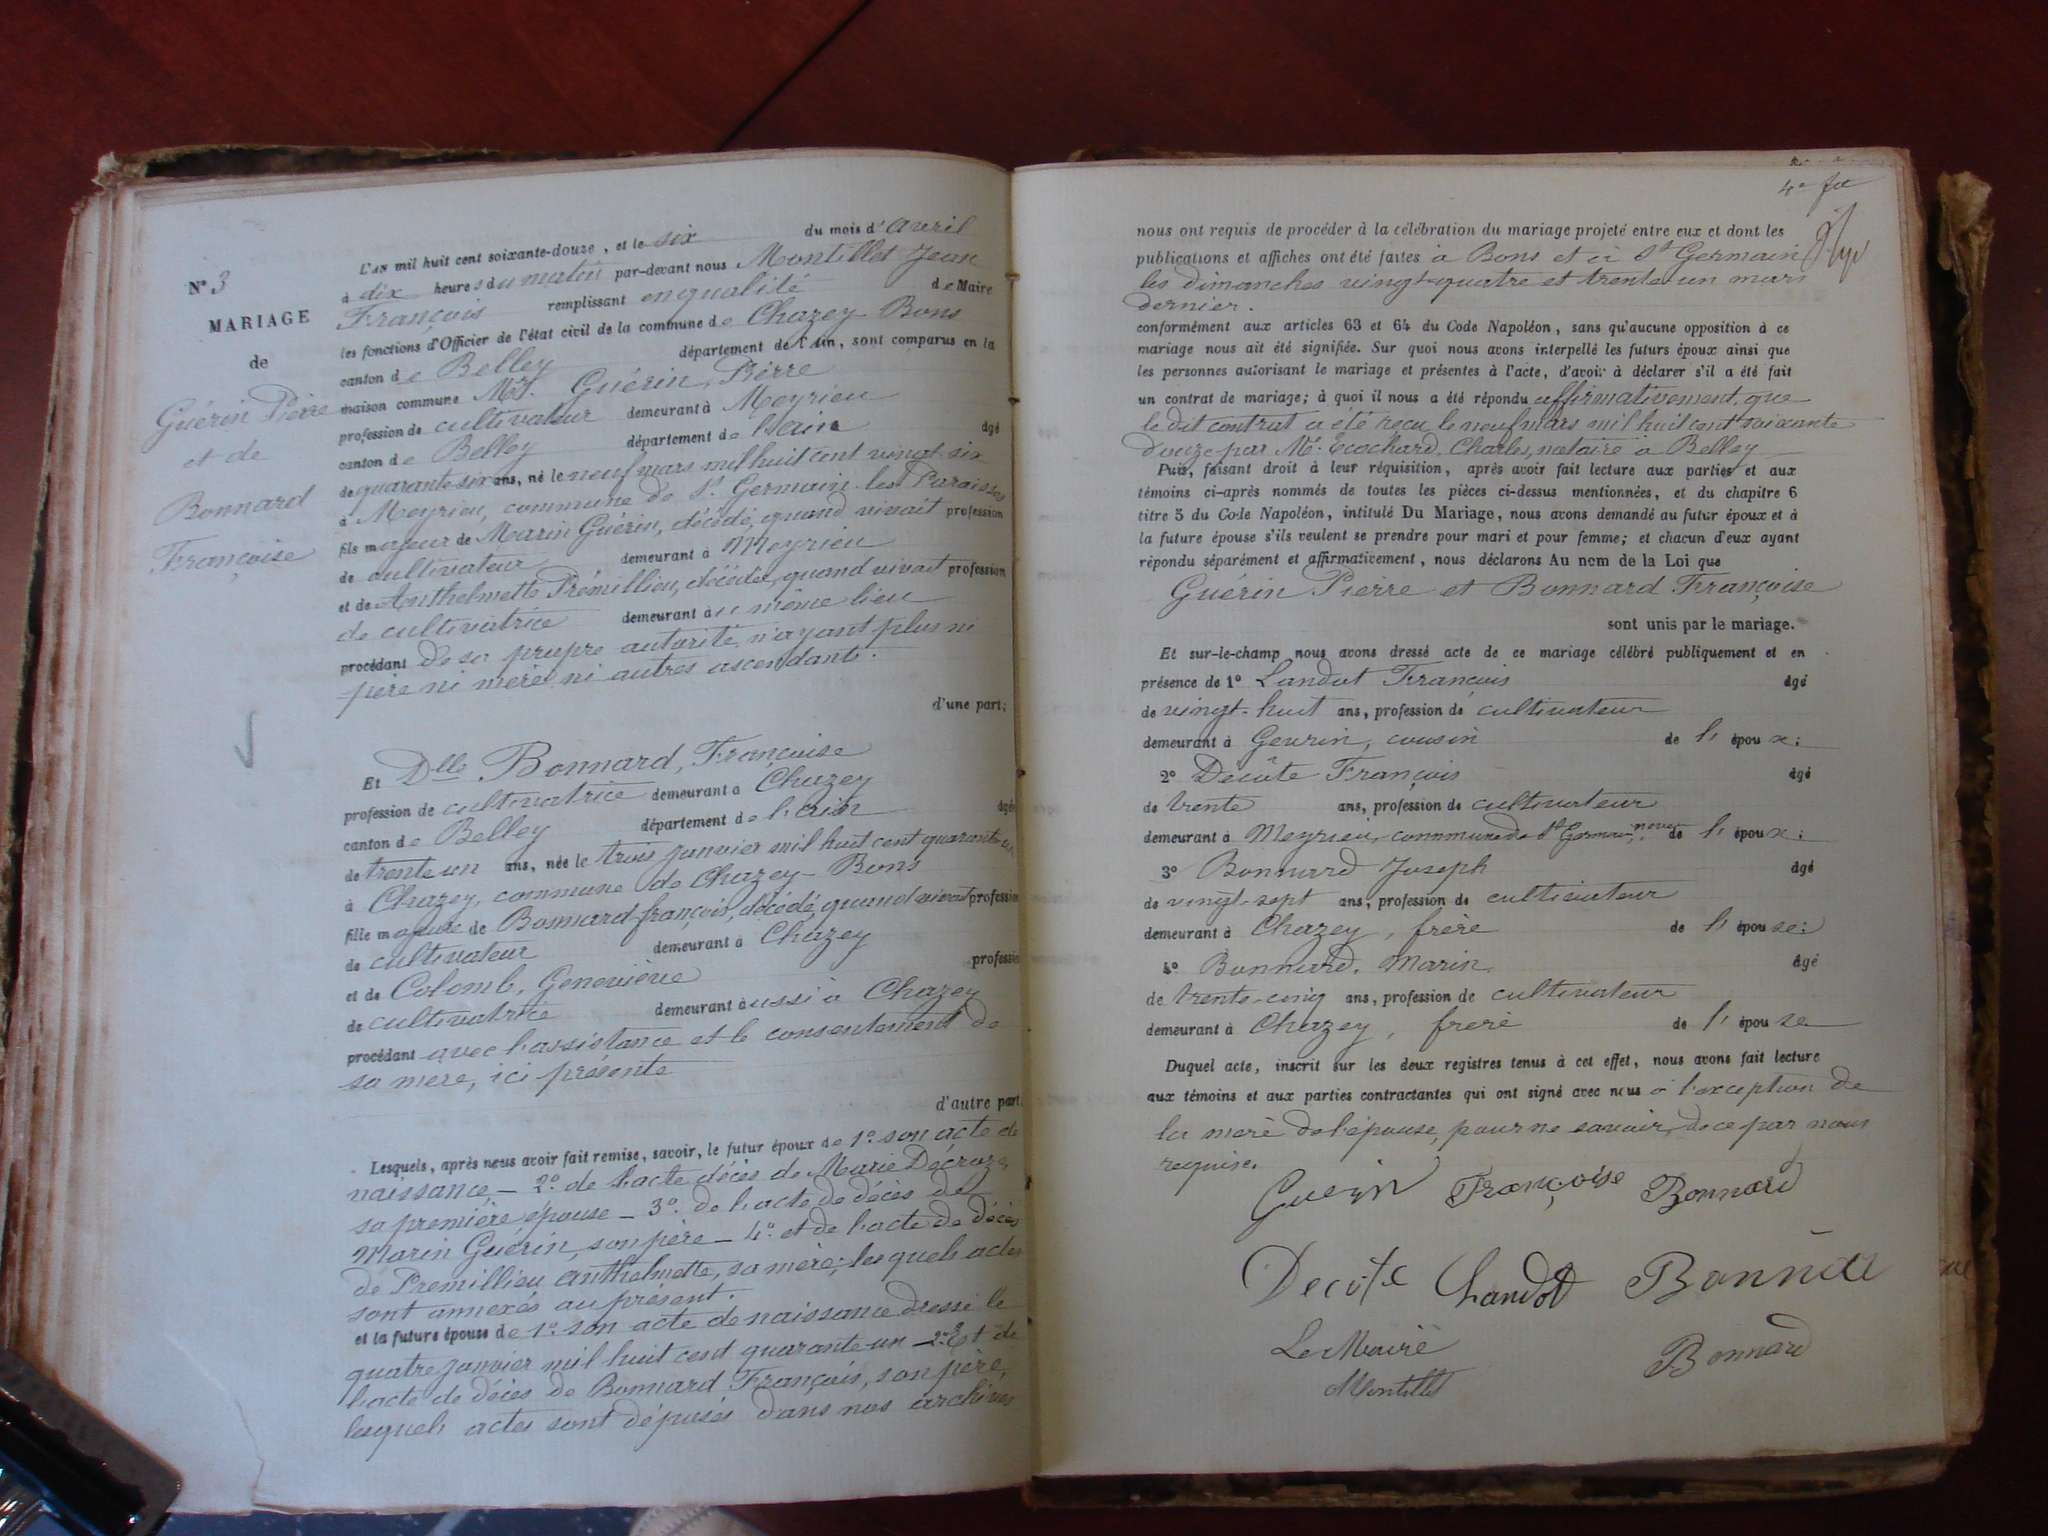 N° 3
MARIAGE
de
Guérin Pierre
et de
Bonnard
Françoise
L'AN mil huit cent soixante-douze, et le six du mois d'avril
à dix heures du matin par-devant nous Montillet Jean
François remplissant en qualité de Maire
les fonctions d'Officier de l'état civil de la commune de Chazey-Bons
canton de Belley département de l'Ain, sont comparus en la
maison commune Mr. Guérin, Pierre
profession de cultivateur demeurant à Meyrieu
canton de Belley département de l'ain âgé
de quarante six ans, né le neuf mars mil huit cent vingt-six
à Meyrieu, commune de St. Germain les Paroisses
fils majeur de Marin Guérin, décédé, quand vivait profession
de cultivateur demeurant à Meyrieu
et de Anthelmette Prémillieu, décédée, quand vivait profession
de cultivatrice demeurant au même lieu
procédant de sa propre autorité n'ayant plus ni
père ni mère ni autres ascendants.
d'une part;
Et Dlle Bonnard, Françoise
profession de cultivatrice demeurant à Chazey
canton de Belley département de l'ain âgé
de trente un ans, née le trois janvier mil huit cent quarante-un
à Chazey, commune de Chazey-Bons
fille majeure de Bonnard françois, décédé, quand vivait profession
de cultivateur demeurant à Chazey
et de Colomb, Geneviève profession
de cultivatrice demeurant aussi à Chazey
procédant avec l'assistance et le consentement de
sa mère, ici présente
d'autre part.
Lesquels, après nous avoir fait remise, savoir, le futur époux de 1° son acte de
naissance – 2° de l'acte décès de Marie Décroze,
sa première épouse – 3° de l'acte de décès de
Marin Guérin, son père – 4° et de l'acte de décès
de Premillieu anthelmette, sa mère; lesquels actes
sont annexés au présent.
et la future épouse de 1° son acte de naissance dressé le
quatre janvier mil huit cent quarante-un – 2° Et de
l'acte de décès de Bonnard François, son père,
lesquels actes sont déposés dans nos archives
4e fet
nous ont requis de procéder à la célébration du mariage projeté entre eux et dont les
publications et affiches ont été faites à Bons et à St Germain
les dimanches vingt-quatre et trente-un mars
dernier.
conformément aux articles 63 et 64 du Code Napoléon, sans qu'aucune opposition à ce
mariage nous ait été signifiée. Sur quoi nous avons interpellé les futurs époux ainsi que
les personnes autorisant le mariage et présentes à l'acte, d'avoir à déclarer s'il a été fait
un contrat de mariage; à quoi il nous a été répondu affirmativement, que
le dit contrat a été reçu le neuf mars mil huit cent soixante
douze par Me. Ecochard, Charles, notaire à Belley
Puis, faisant droit à leur réquisition, après avoir fait lecture aux parties et aux
témoins ci-après nommés de toutes les pièces ci-dessus mentionnées, et du chapitre 6
titre 5 du Code Napoléon, intitulé Du Mariage, nous avons demandé au futur époux et à
la future épouse s'ils veulent se prendre pour mari et pour femme; et chacun d'eux ayant
répondu séparément et affirmativement, nous déclarons Au nom de la Loi que
Guérin Pierre et Bonnard Françoise
sont unis par le mariage.
Et sur-le-champ nous avons dressé acte de ce mariage célébré publiquement et en
présence de 1° Landot François âgé
de vingt-huit ans, profession de cultivateur
demeurant à Gevrin, cousin de l' époux:
2° Decôte François âgé
de trente ans, profession de cultivateur
demeurant à Meyrieu, commune de St Germain, neveu de l' époux:
3° Bonnard Joseph âgé
de vingt-sept ans, profession de cultivateur
demeurant à Chazey, frère de l' épouse:
4° Bonnard, Marin, âgé
de trente-cinq ans, profession de cultivateur
demeurant à Chazey, frère de l' épouse
Duquel acte, inscrit sur les deux registres tenus à cet effet, nous avons fait lecture
aux témoins et aux parties contractantes qui ont signé avec nous à l'exception de
la mère de l'épouse, pour ne savoir, de ce par nous
requise.
Guerin Françoise Bonnard
Decôte Landot Bonnard
Le Maire Bonnard
Montillet